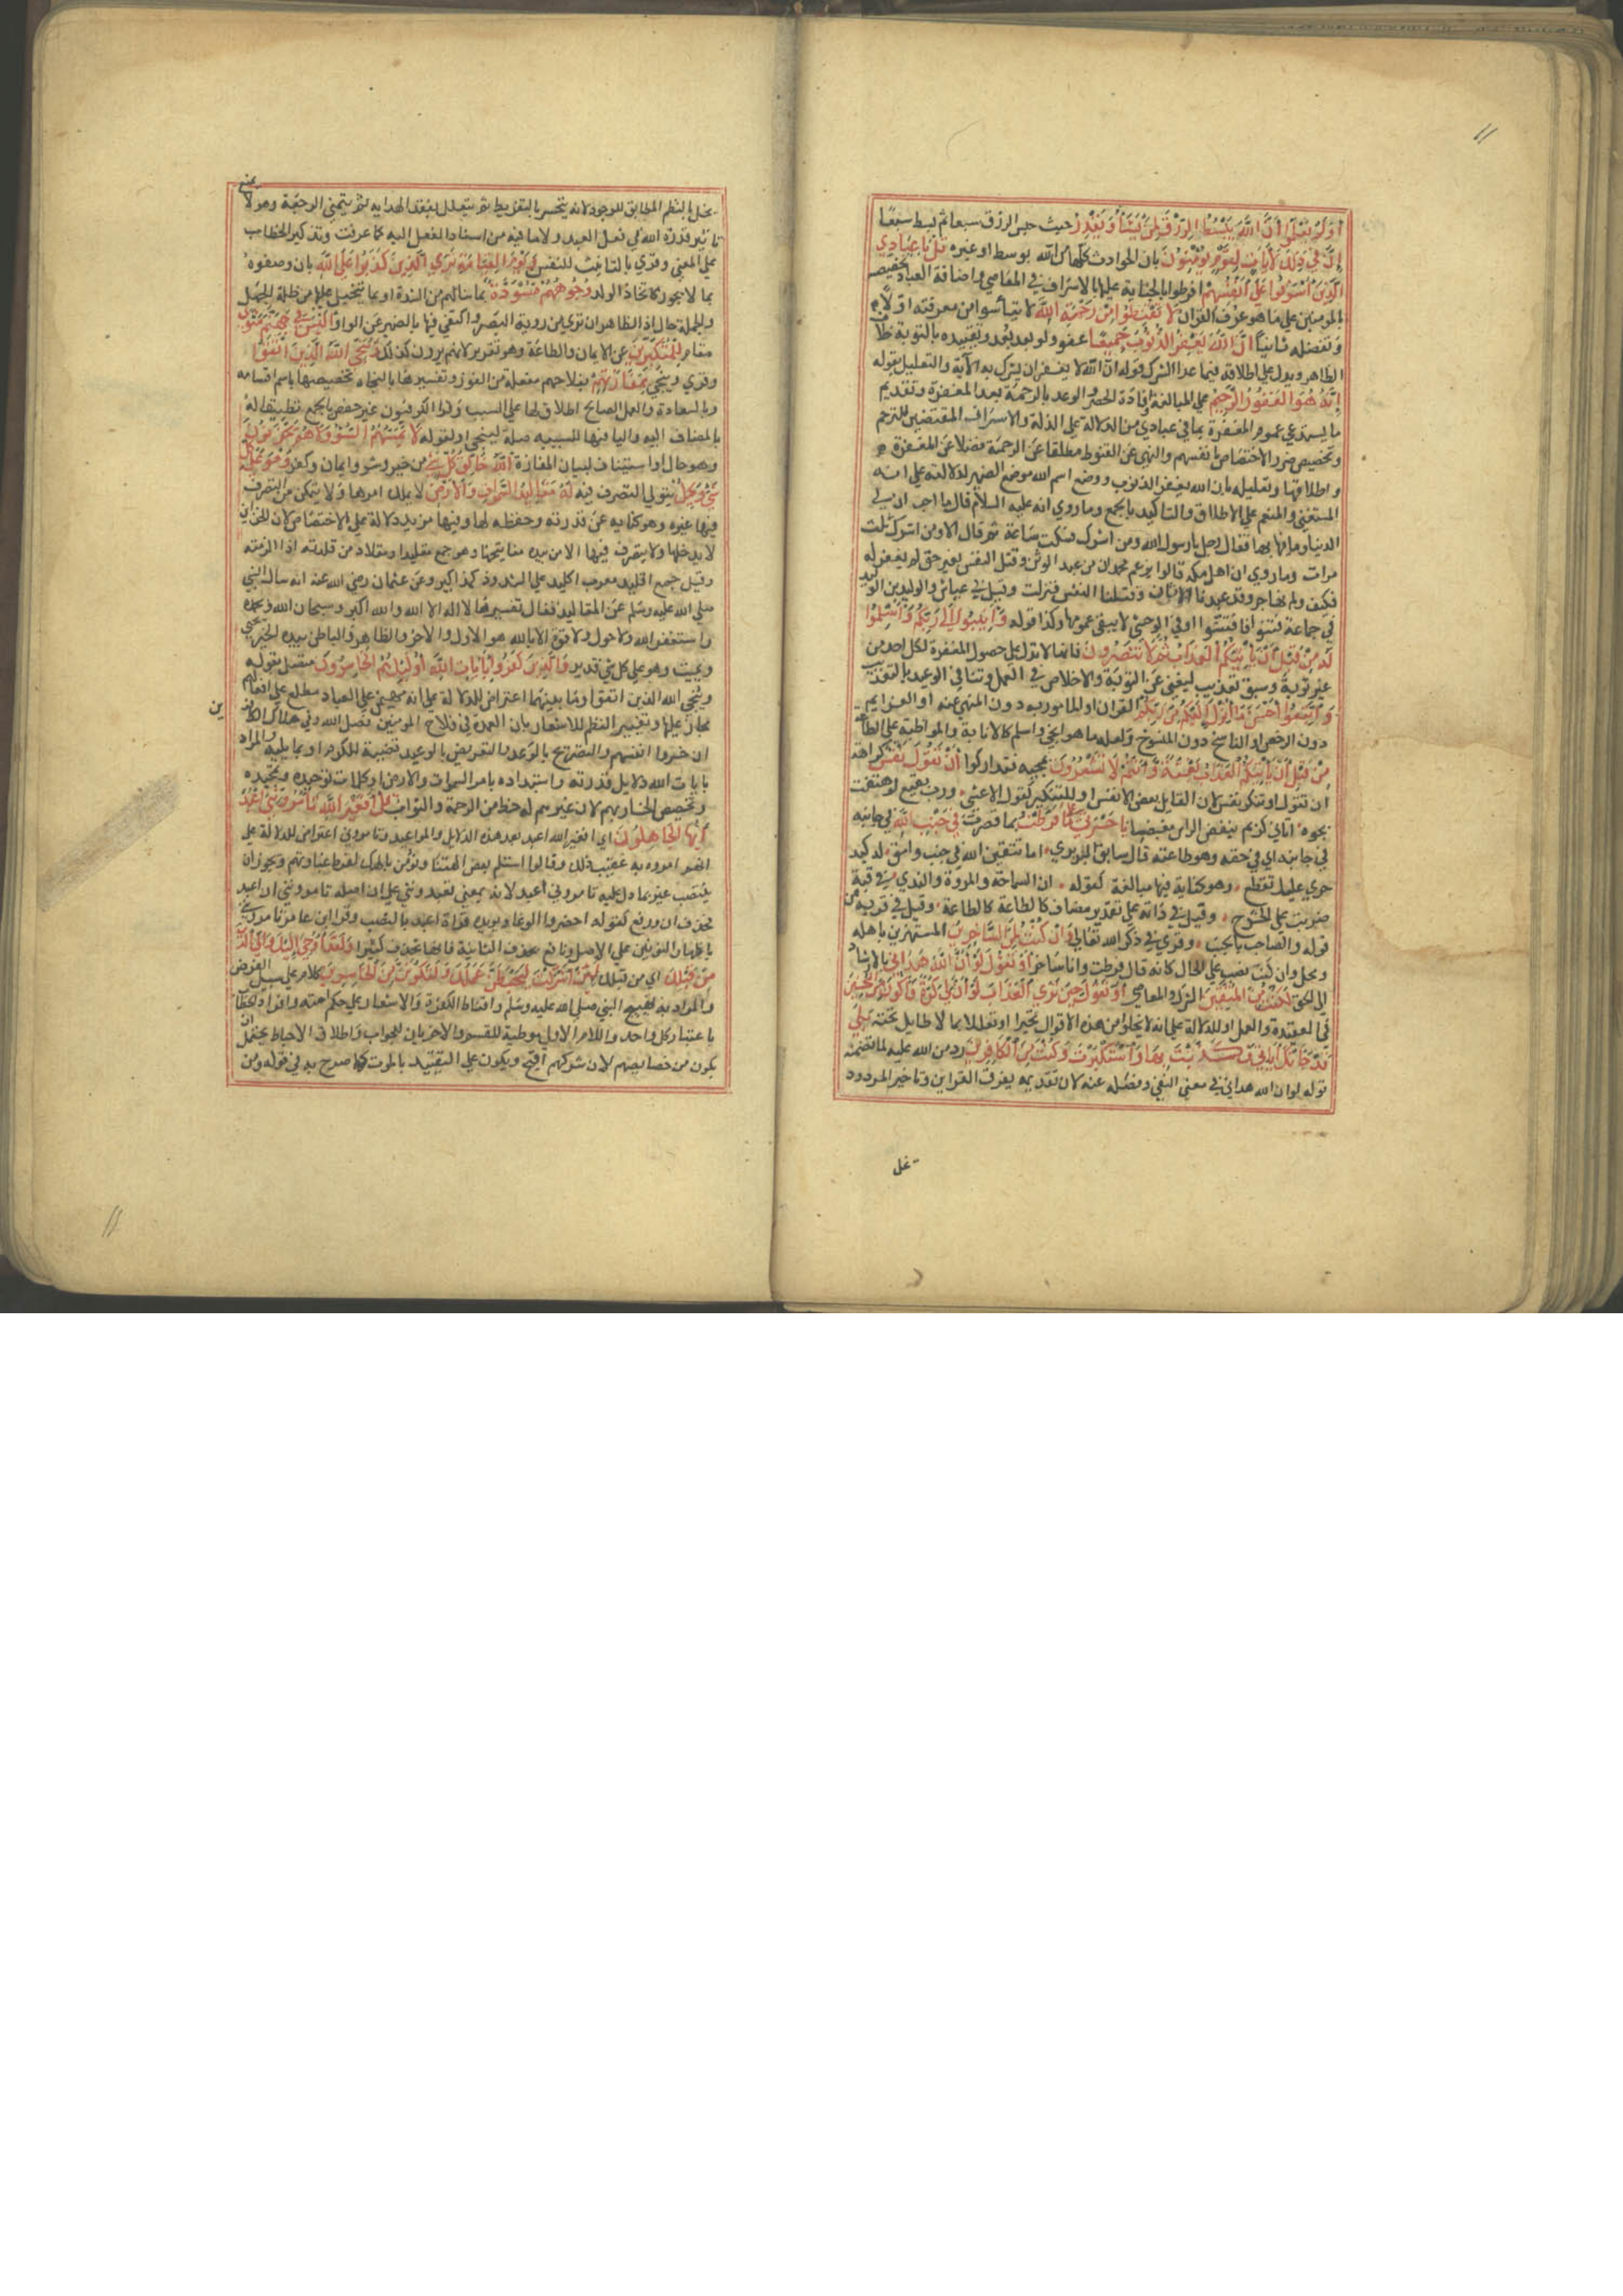 أو لم يعلموا أن الله يبسط الرزق لمن يشاء ويقدر حيث حبس الرزق سبعا ثم بسط سبعا
إن في ذلك لآيات لقوم يؤمنون بان الحوادث كلها من الله بوسط او غيره قل يا عبادي
الذين أسرفوا على أنفسهم افرطوا بالجناية عليها بالاسراف في المعاصي واضافة العباد تخصيص
بالمومنين على ما هو عرف القران لا تقنطوا من رحمة الله لا تيأسوا من مغفرته اولا
وتفضله ثانيا ان الله يغفر الذنوب جميعا عفوا ولو بعد بعد وتقييده بالتوبة خلاف
الظاهر ويدل على اطلاقه فيما عدا الشرك قوله ان الله لا يغفر ان يشرك به الآية والتعليل بقوله
إنه هو الغفور الرحيم على المبالغة وإفادة الحصر والوعد بالرحمة بعد المغفرة وتقديم
ما يستدعي عموم المغفرة بما في عبادي من الدلالة على الذلة والاسراف المقتضين للترحم
وتخصيص ضرر الاختصاص بانفسهم والنهي عن القنوط مطلقا عن الرحمة فضلا عن المغفرة
واطلاقها وتعليله بان الله يغفر الذنوب ووضع اسم الله موضع الضمير لدلالته على انه
المستغني والمنعم على الاطلاق والتاكيد بالجميع وما روي انه عليه السلام قال ما احب ان لي
الدنيا وما فيها بها فقال رجل يا رسول الله ومن اشرك فسكت ساعة ثم قال الا ومن اشرك ثلث
مرات وما روي ان اهل مكة قالوا يزعم محمد ان من عبد الوثن وقتل النفس بغير حق لم يغفر له
فكيف ولم نهاجر وقد عبدنا الاوثان وقتلنا النفس فنزلت وقيل في عياش والوليد بن الوليد
في جماعة فتنوا فافتتنوا او في الوحشي لا ينفي عمومها وكذا قوله وأنيبوا إلى ربكم وأسلموا
له من قبل أن يأتيكم العذاب ثم لا تنصرون فانها لا تدل على حصول المغفرة لكل احد من
غير توبة وسبق تعذيب ليغني عن التوبة والاخلاص في العمل وتنافي الوعيد بالتعذيب
واتبعوا أحسن ما أنزل إليكم من ربكم القران او المامور به دون المنهي عنه او العزايم
دون الرخص او الناسخ دون المنسوخ ولعله ما هو انجى واسلم كالانابة والمواظبة على الطاعة
من قبل أن يأتيكم العذاب بغتة وأنتم لا تشعرون بمجيه فتداركوا أن تقول نفس كراهة
ان تقول وتنكير نفس لان القايل بعض الانفس او للتكثير كقول الاعشى ورب بقيع لو هتفت
بجوه اتاني كريم ينفض الراس مغضبا يا حسرتى على ما فرطت بما قصرت في جنب الله في جانبه
في جانبه اي في حقه وهو طاعته قال سابق البربري اما تتقين الله في جنب وامق له كبد
حرى عليك تقطع وهو كناية فيها مبالغة كقوله ان السماحة والمروة والندى في قبة
ضربت على ابن الحشرج وقيل في ذاته على تقدير مضاف كالطاعة وقيل في قربه من
قوله والصاحب بالجنب وقري في ذكر الله تعالى وإن كنت لمن الساخرين المستهزين باهله
ومحل وان كنت نصب على الحال كانه قال فرطت وانا ساخر أو تقول لو أن الله هداني بالارشاد
الى الحق لكنت من المتقين الشرك والمعاصي أو تقول حين ترى العذاب لو أن لي كرة فأكون من المحسنين
في العقيدة والعمل او للدلالة على انه لا يخلو من هذه الاقوال تحيرا او تعللا بما لا طايل تحته بلى
قد جاءتك آياتي فكذبت بها واستكبرت وكنت من الكافرين رد من الله عليه لما تضمنه
قوله لو ان الله هداني في معنى النفي وفصله عنه لان تقديمه يفرق القراين وتاخير المردود
تخل
يخل بالنظم المطابق للوجود لانه يتحسر بالتفريط ثم يتعلل بفقد الهداية ثم يتمنى الرجعة وهو لا يمنع
تاثير قدرة الله في فعل العبد ولا ما فيه من اسناد الفعل اليه كما عرفت وتذكير الخطاب
على المعنى وقري بالتانيث للنفس ويوم القيامة ترى الذين كذبوا على الله بان وصفوه
بما لا يجوز كاتخاذ الولد وجوههم مسودة بما ينالهم من الشدة او بما يتخيل عليها من ظلمة الجهل
والجملة حال اذ الظاهر ان ترى من روية البصر واكتفي فيها بالضمير عن الواو أليس في جهنم مثوى
مقام للمتكبرين عن الايمان والطاعة وهو تقرير لانهم يرون كذلك وينجي الله الذين اتقوا
وقري وينجي بمفازتهم بفلاحهم مفعلة من الفوز وتفسيرها بالنجاة تخصيصها باهم اقسامه
وبالسعادة والعمل الصالح اطلاق لها على السبب وقرا الكوفيون غير حفص بالجمع تطبيقا له
بالمضاف اليه والبا فيها للسببية صلة لينجي او لقوله لا يمسهم السوء ولا هم يحزنون
وهو حال او استيناف لبيان المفازة الله خالق كل شيء من خير وشر وايمان وكفر وهو على كل
شيء وكيل يتولى التصرف فيه له مقاليد السموات والأرض لا يملك امرها ولا يتمكن من التصرف
فيها غيره وهو كناية عن قدرته وحفظه لها وفيها مزيد دلالة على الاختصاص لان الخزاين
لا يدخلها ولا يتصرف فيها الا من بيده مفاتيحها وهو جمع مقليد او مقلاد من قلدته اذا الزمته
وقيل جمع اقليد معرب اكليد على الشذوذ كمذاكير وعن عثمان رضي الله عنه انه سال النبي
صلى الله عليه وسلم عن المقاليد فقال تفسيرها لا اله الا الله والله اكبر وسبحان الله وبحمده
واستغفر الله ولا حول ولا قوة الا بالله هو الاول والاخر والظاهر والباطن بيده الخير يحيي
ويميت وهو على كل شي قدير والذين كفروا بآيات الله أولئك هم الخاسرون متصل بقوله
وينجي الله الذين اتقوا وما بينهما اعتراض للدلالة على انه مهيمن على العباد مطلع على افعالهم
مجاز عليها وتغيير النظم للاشعار بان العمدة في فلاح المومنين فضل الله وفي هلاك الكافرين
ان خسروا انفسهم والتصريح بالوعد والتعريض بالوعيد قضية للكرم او بما يليه والمراد
بايات الله دلايل قدرته واستبداده بامر السموات والارض او كلمات توحيده وتمجيده
وتخصيص الخسار بهم لان غيرهم له حظ من الرحمة والثواب قل أفغير الله تأمروني أعبد
أيها الجاهلون اي افغير الله اعبد بعد هذه الدلايل والمواعيد وتامروني اعتراض للدلالة على
انهم امروه به عقيب ذلك وقالوا استلم بعض الهتنا ونومن بالهك لفرط غباوتهم ويجوز ان
ينتصب غير بما دل عليه تامروني اعبد لانه بمعنى تعبدونني على ان اصله تامرونني ان اعبد
فحذف ان ورفع كقوله احضروا الوغا ويويده قراة اعبد بالنصب وقرا ابن عامر تامرونني
باظهار النونين على الاصل ونافع بحذف الثانية فانها تحذف كثيرا ولقد أوحي إليك وإلى الذين
من قبلك اي من قبلك لئن أشركت ليحبطن عملك ولتكونن من الخاسرين كلام على سبيل الفرض
والمراد به تهييج النبي صلى الله عليه وسلم واقناط الكفرة والاشعار على حكم امته وافراد الخطاب
باعتبار كل واحد واللام الاولى موطية للقسم والاخريان للجواب واطلاق الاحباط يحتمل ان
يكون من خصايصهم لان شركهم اقبح ويكون على التقييد بالموت كما صرح به في قوله ومن